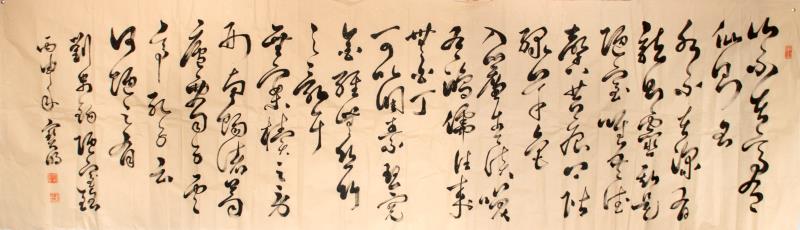 山不在高有
仙則名
水不在深有
龍則靈斯是
陋室唯吾德
馨苔痕上階
綠草色
入簾青談笑
有鴻儒往來
無白丁
可以調素琴閱
金經無絲竹
之亂耳
無案牘之勞
形南陽諸葛
廬西蜀子雲
亭孔子云
何陋之有
劉禹錫陋室銘
丙申年寶